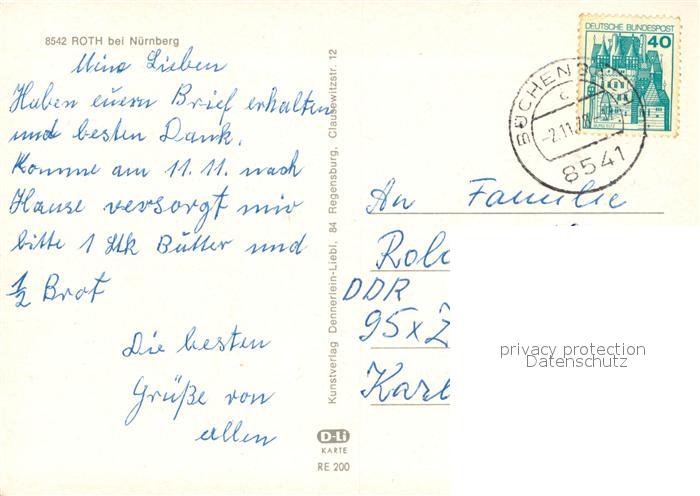 8542 ROTH bei Nürnberg
Meine Lieben
Haben euern Brief erhalten
und besten Dank.
Komme am 11.11. nach
Hause versorgt mir
bitte 1 Stk Butter und
1/2 Brot
Die besten
Grüße von
allen
Kunstverlag Dennerlein-Liebl, 84 Regensburg, Clausewitzstr. 12
D-Li
KARTE
RE 200
DEUTSCHE BUNDESPOST
40
-2.11.78
8541
An Familie
DDR
95x
privacy protection
Datenschutz